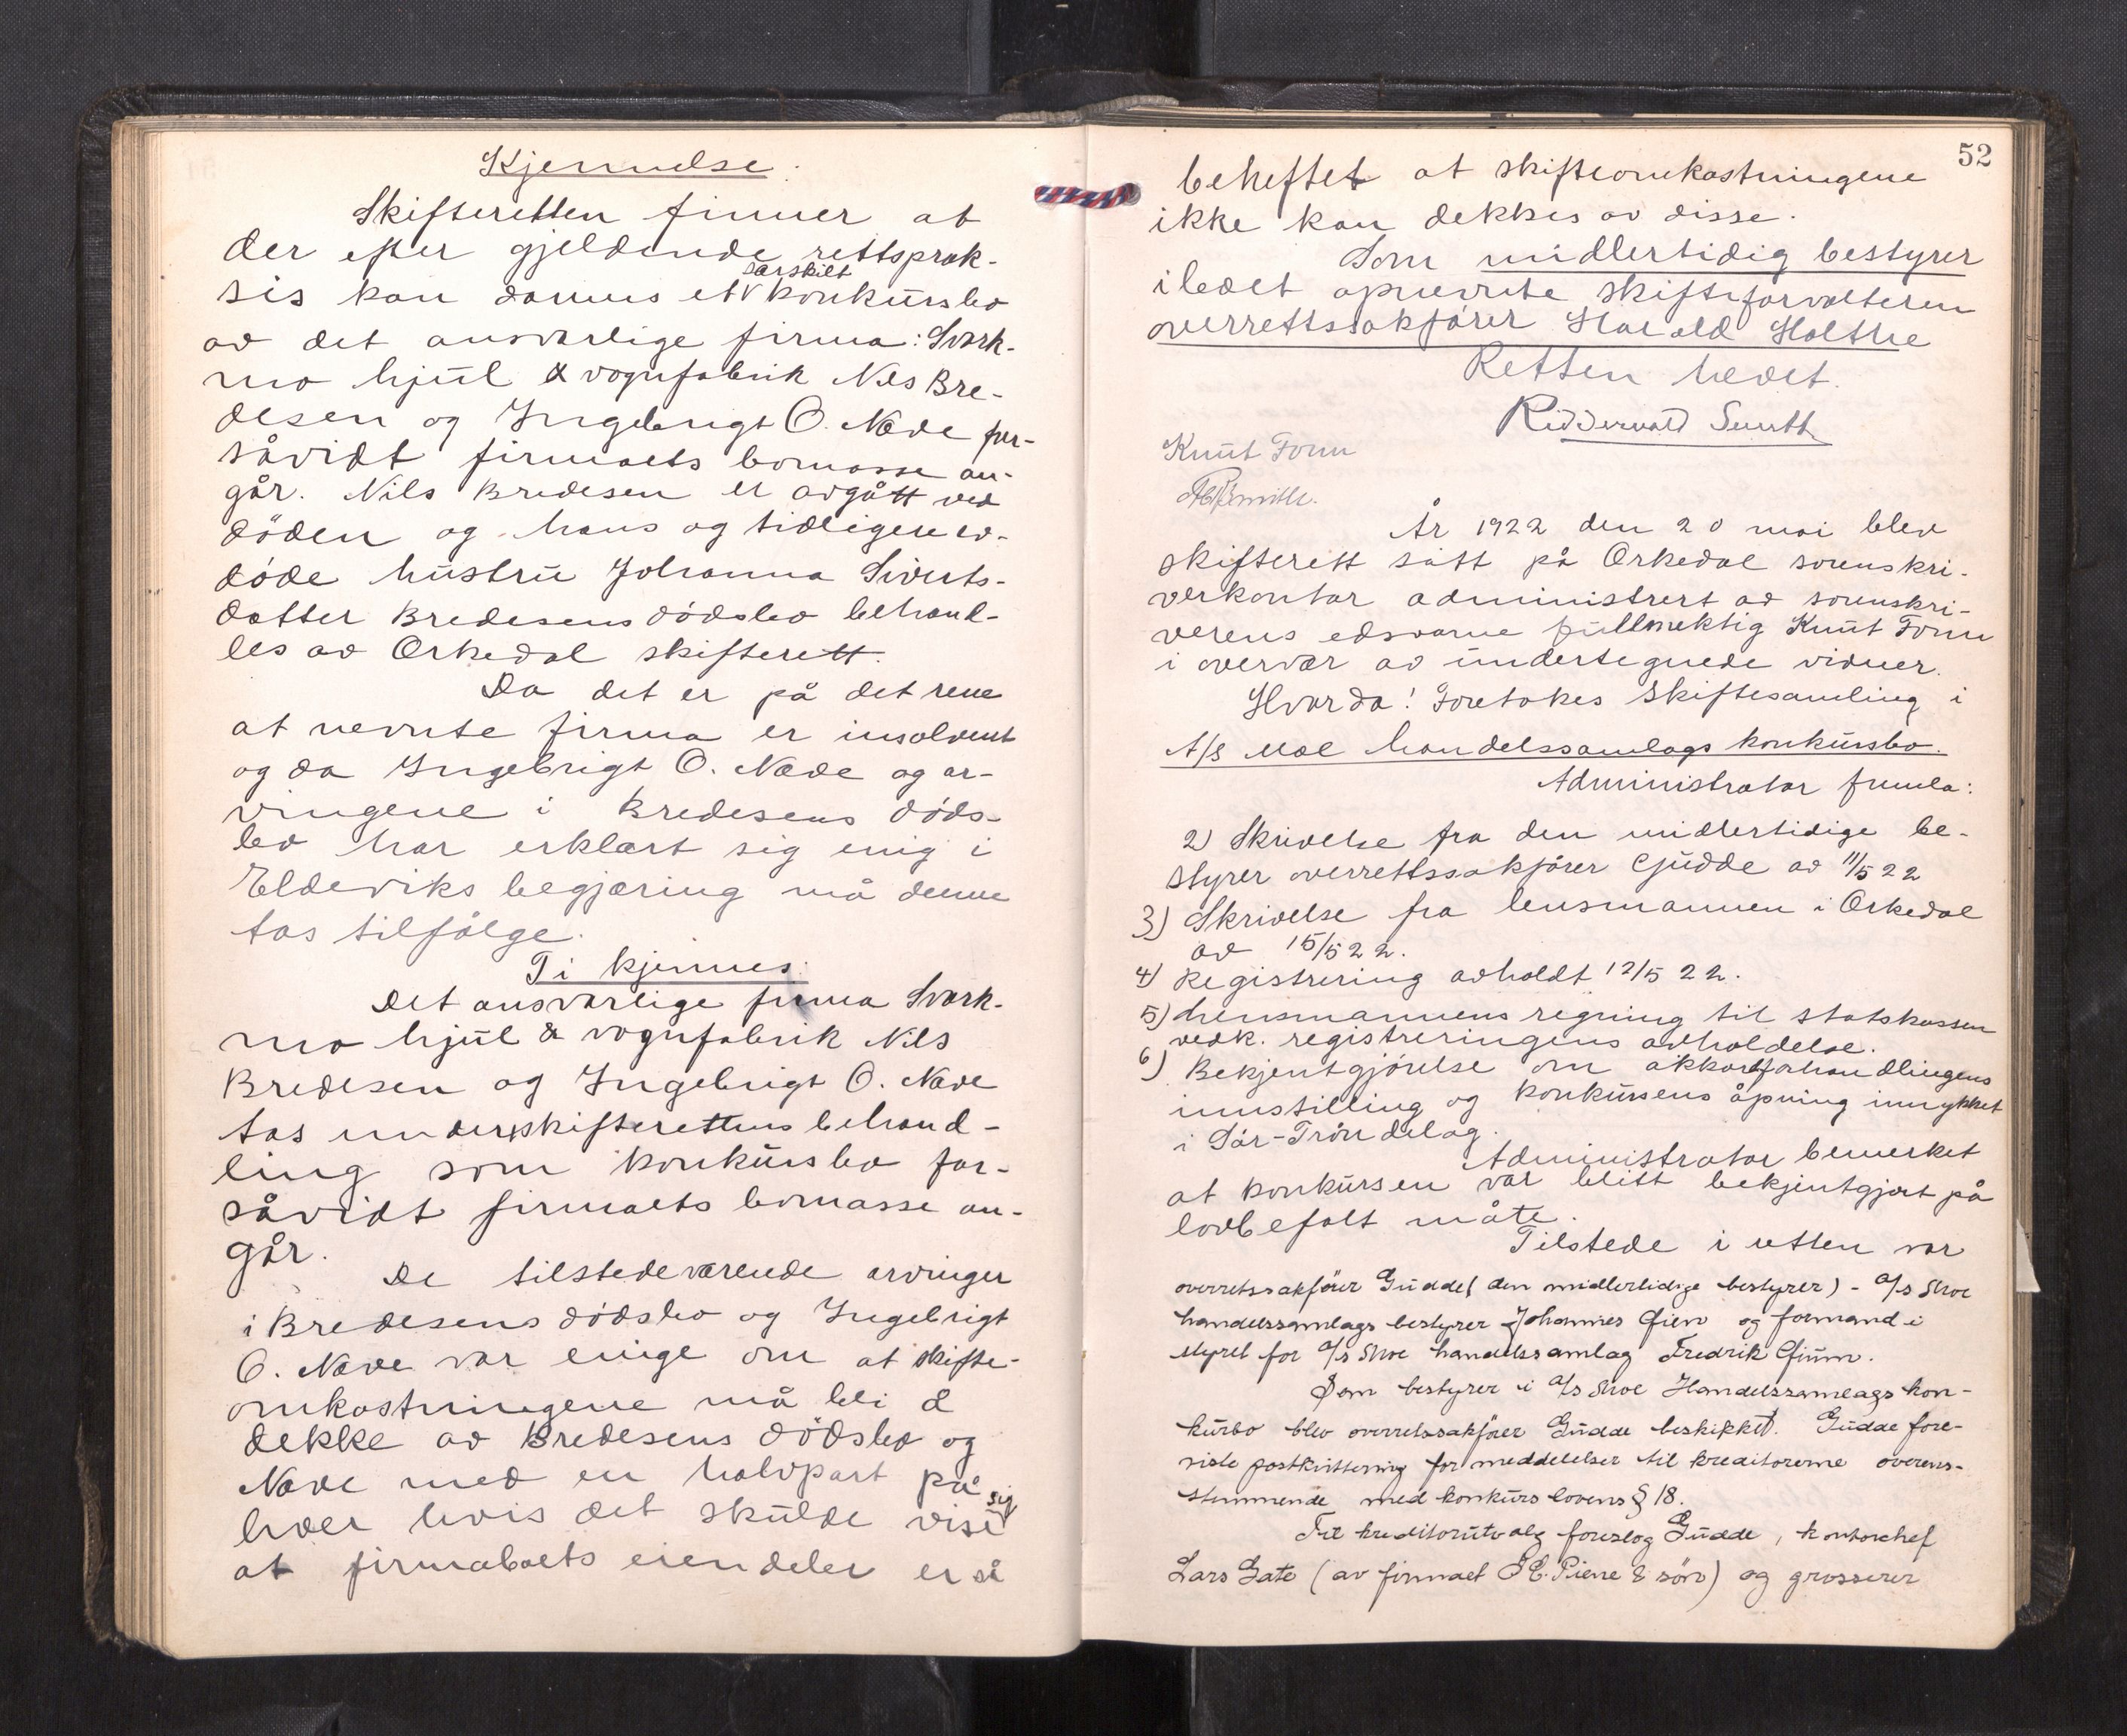 Kjennelse:
Skifteretten finner at
der efter gjeldende rettsprak-
sis kan dannes et særskilt konkursbo
av det ansvarlige firma: Svork-
mo hjul & vognfabrik Nils Bre-
desen og Ingebrigt O. Næve for-
såvidt firmaets bomasse an-
går. Nils Bredesen er avgått ved
døden og hans og tidligere av-
døde hustru Johanna Siverts-
datter Bredesens dødsbo behand-
les av Orkedal skifterett.
Da det er på det rene
at nevnte firma er insolvent
og da Ingebrigt O. Næve og ar-
vingene i Bredesens døds-
bo har erklært sig enig i
Eldeviks begjæring må denne
tas tilfølge.
Ti kjennes:
Det ansvarlige firma Svork-
mo hjul & vognfabrik Nils
Bredesen og Ingebrigt O. Næve
tas under skifterettens behand-
ling som konkursbo for-
såvidt firmaets bomasse an-
går.
De tilstedeværende arvinger
i Bredesens dødsbo og Ingebrigt
O. Næve var enige om at skifte-
omkostningene må bli å
dekke av Bredesens dødsbo og
Næve med en halvpart på
hver hvis det skulde vise sig
at firmaboets eiendeler er så
52
beheftet at skifteomkostningene
ikke kan dekkes av disse.
Som midlertidig bestyrer
i boet opnevnte skifteforvalteren
overrettssakfører Harald Holthe
Retten hevet.
Riddervold Smith
Knut Tonn
År 1922 den 20 mai blev
skifterett satt på Orkedal sorenskri-
verkontor administrert av sorenskri-
verens edsvorne fullmektig Knut Tonn
i overvær av undertegnede vidner.
Hvorda! Foretokes skiftesamling i
A/S Moe handelssamlags konkursbo.
Administrator fremla:
2) Skrivelse fra den midlertidige be-
styrer overrettssakfører Gudde av 11/5 22
3) Skrivelse fra lensmannen i Orkedal
av 15/5 22.
4) Registrering avholdt 12/5 22.
5) Lensmannens regning til statskassen
vedk. registreringens avholdelse.
6) Bekjentgjørelse om akkordforhandlingens
innstilling og konkursens åpning innrykket
i Sør-Trøndelag.
Administrator bemerket
at konkursen var blitt bekjentgjort på
lovbefalt måte.
Tilstede i retten var
overretssakfører Gudde (den midlertidige bestyrer) - A/s Moe
handelssamlags bestyrer Johannes Gjen og formand i
styret for A/s Moe handelssamlag Fredrik Gjum.
Som bestyrer i A/s Moe Handelssamlags kon-
kursbo blev overretssakfører Gudde beskikket. Gudde fore-
viste postkvittering for meddelelser til kreditorerne overens-
stemmende med konkurslovens § 18.
Til kreditorutvalg foreslog Gudde, kontorchef
Lars Gate (av firmaet I. E. Piene & søn) og grosserer